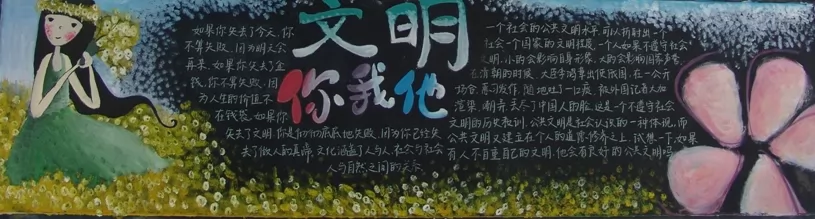 文明
你我他
如果你失去了今天，你
不算失败，因为明天会
再来。如果你失去了金
钱，你不算失败，因
为人生的价值不
在钱袋。如果你
失去了文明，你是彻彻底底地失败，因为你已经失
去了做人的真谛。文化涵盖了人与人、社会与社会
人与自然之间的关系
一个社会的公共文明水平，可以折射出一个
社会一个国家的文明程度，一个人如果不遵守社会
文明，小的会影响自身形象，大的会影响国家声誉
在清朝的时候，大臣李鸿章出使俄国，在一公开
场合，恶习发作，随地吐了一口痰，被外国记者大加
渲染、嘲弄，丢尽了中国人的脸。这是一个不遵守社会
文明的历史教训。公共文明是社会认识的一种体现，而
公共文明又建立在个人的道德修养之上。试想一下，如果
有人不自重自己的文明，他会有良好的公共文明吗